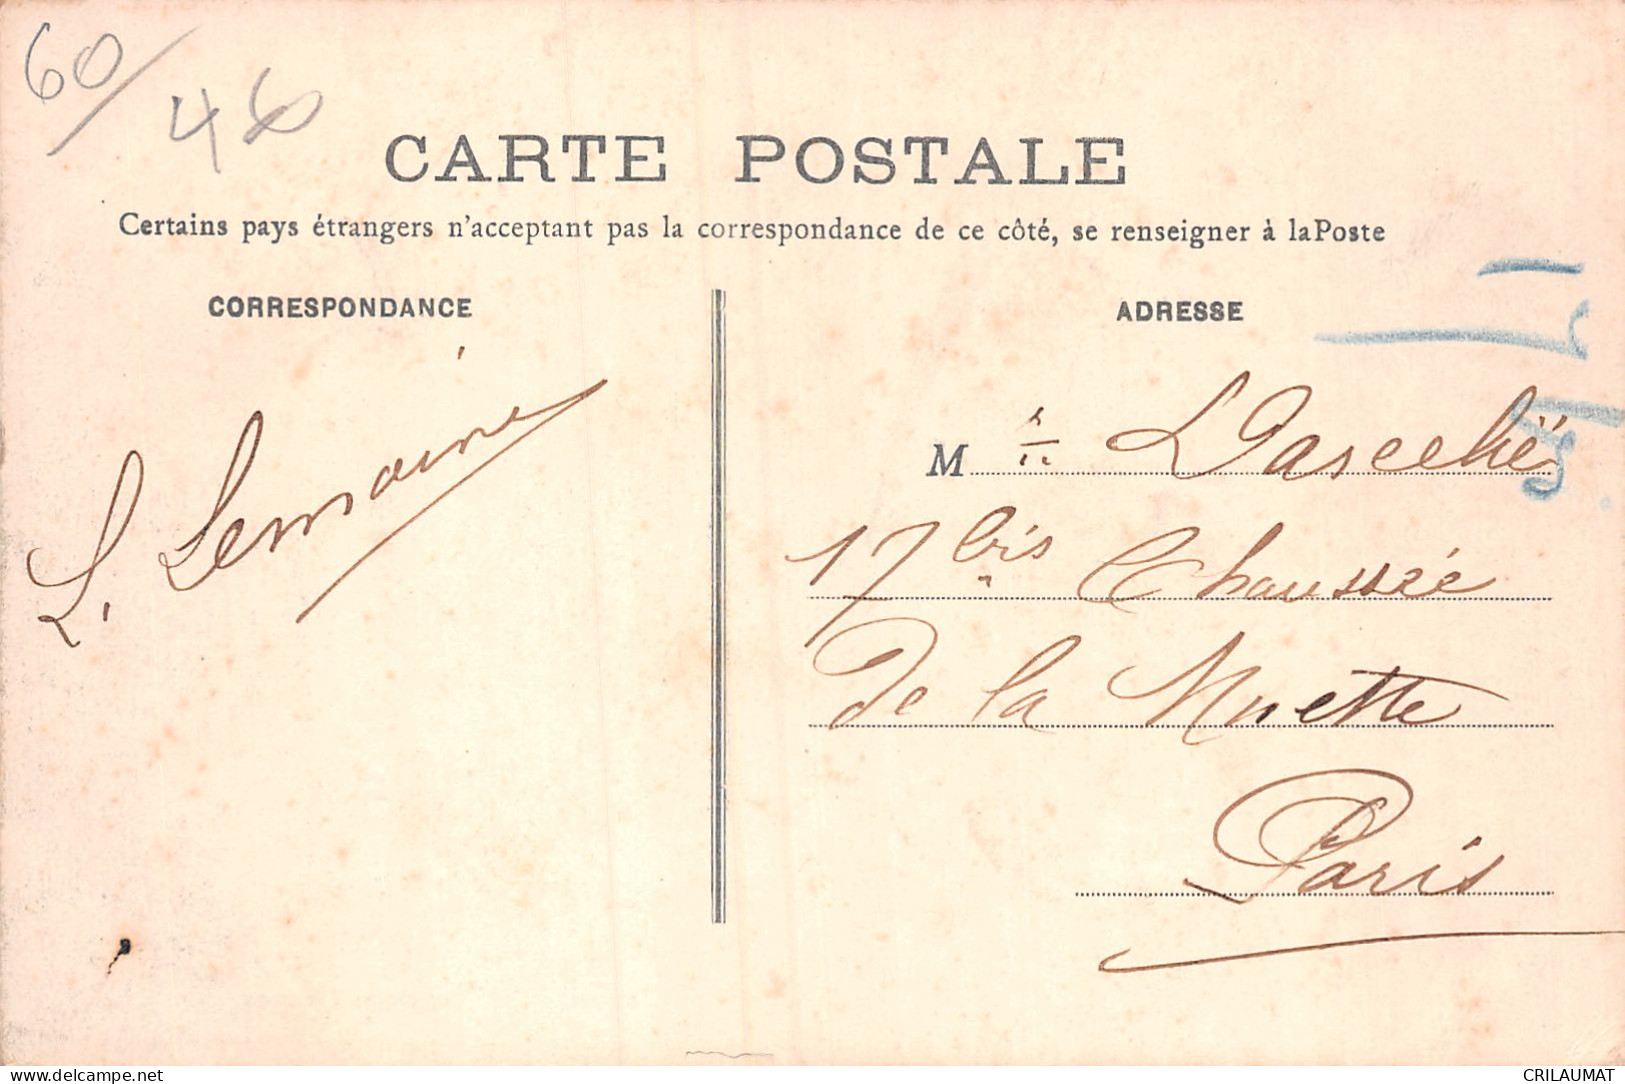 60/
46
CARTE POSTALE
Certains pays étrangers n'acceptant pas la correspondance de ce côté, se renseigner à laPoste
CORRESPONDANCE
L. Lemoine
ADRESSE
M r
17 bis Chaussée
De la Muette
Paris
delcampe.net
CRILAUMAT